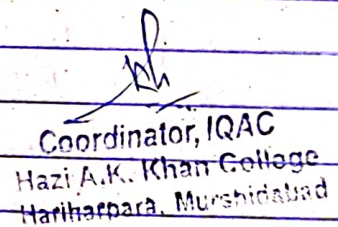 Coordinator, IQAC
Hazi A.K. Khan College
Hariharpara, Murshidabad